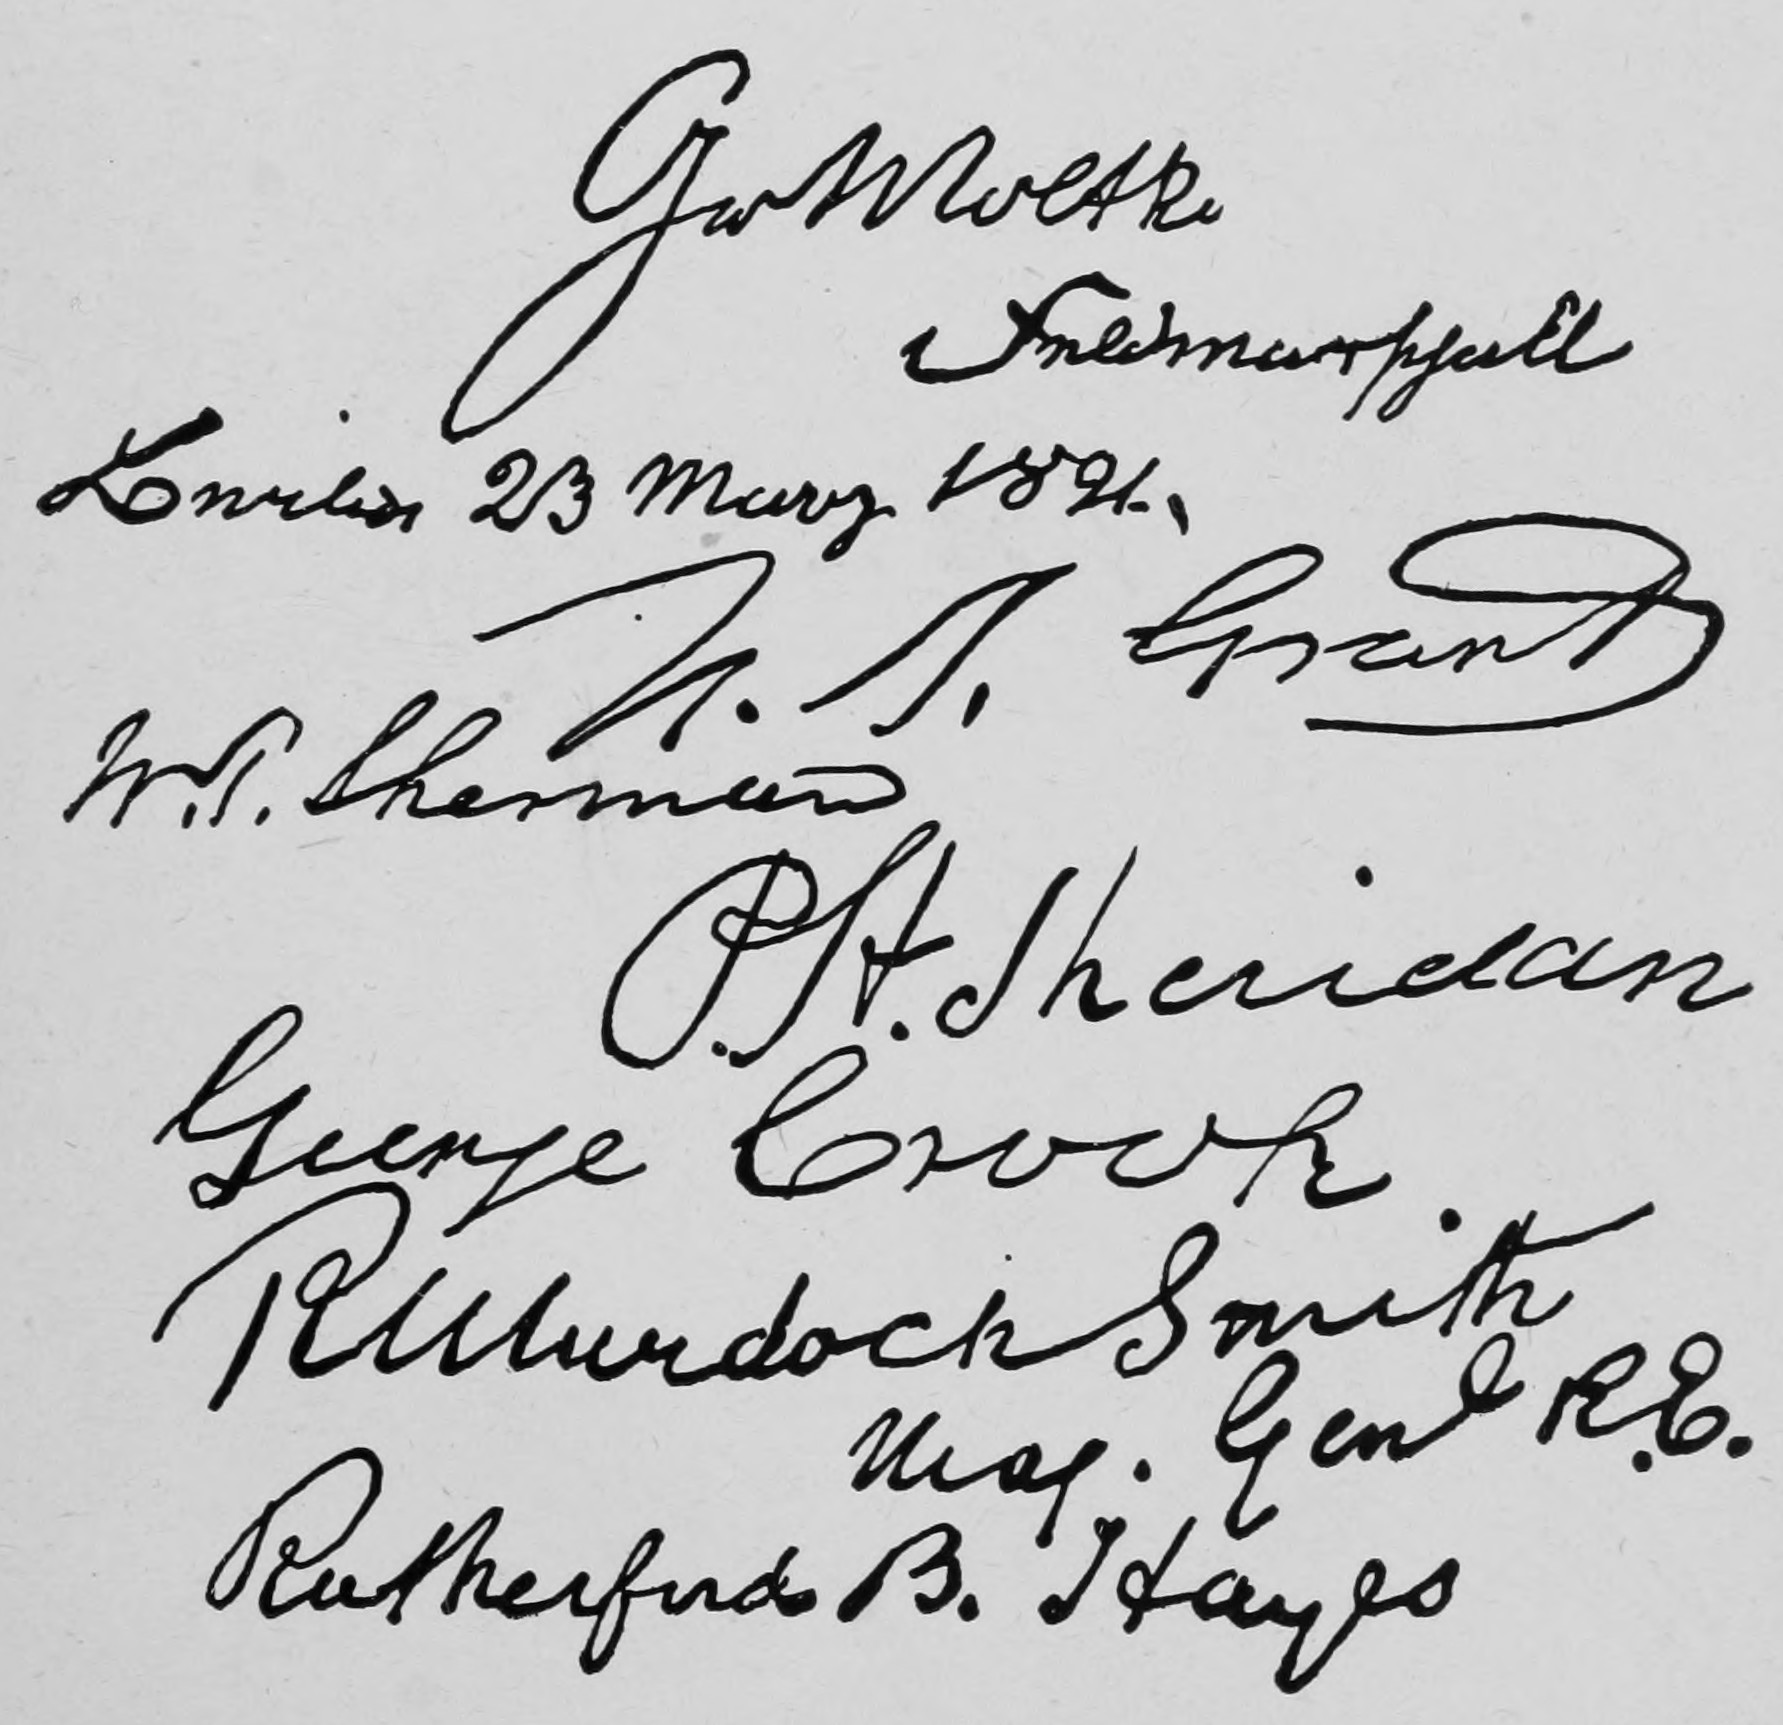 Gr Moltke
Feldmarschall
Berlin 23 März 1891.
U. S. Grant
W.T. Sherman
P. H. Sheridan
George Crook
R Murdoch Smith
Maj. Genl R.E.
Rutherford B. Hayes